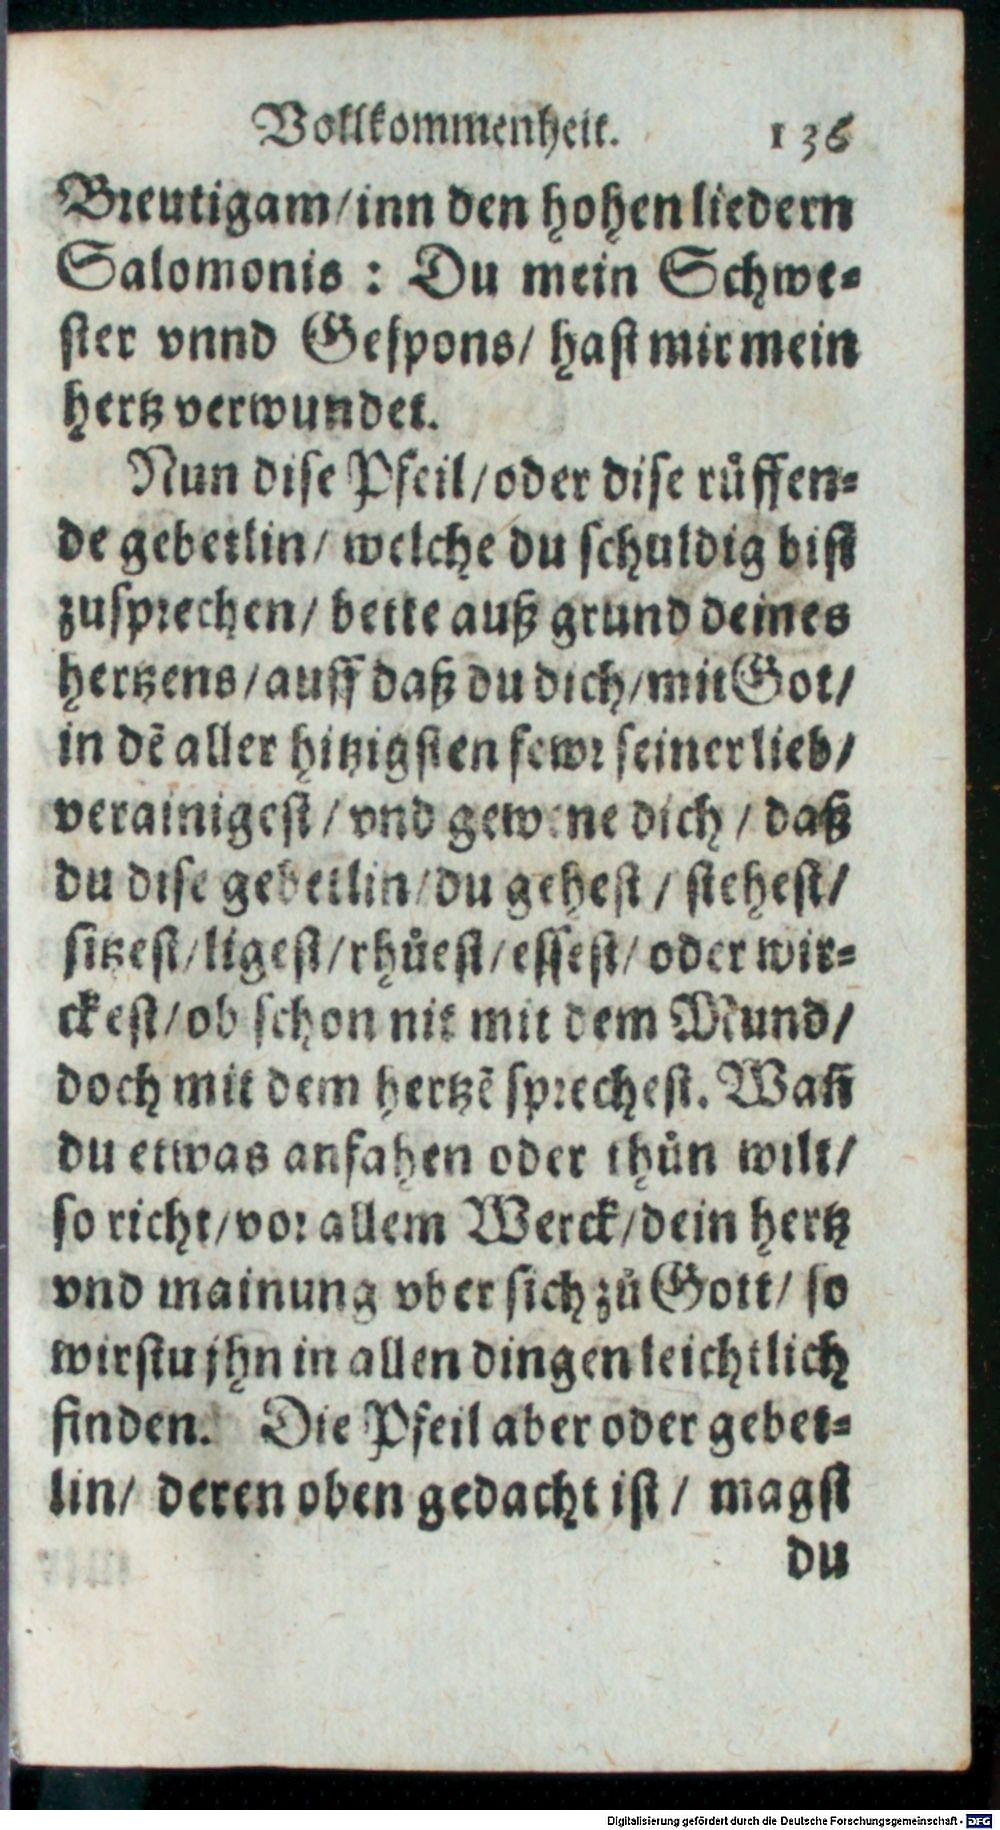 Vollkommenheit. 136
Breutigam/ inn den hohen liedern
Salomonis : Du mein Schwe-
ster vnnd Gespons/ hast mir mein
hertz verwundet.
Nun dise Pfeil/ oder dise růffen-
de gebetlin/ welche du schuldig bist
zusprechen/ bette auß grund deines
hertzens/ auff daß du dich/ mit Got/
in dẽ aller hitzigsten fewr seiner lieb/
verainigest/ vnd gewene dich/ daß
du dise gebetlin/ du gehest/ stehest/
sitzest/ ligest/ rhůest/ essest/ oder wir-
ckest/ ob schon nit mit dem Mund/
doch mit dem hertzẽ sprechest. Wañ
du etwas anfahen oder thůn wilt/
so richt/ vor allem Werck/ dein hertz
vnd mainung vber sich zů Gott/ so
wirstu jhn in allen dingen leichtlich
finden. Die Pfeil aber oder gebet-
lin/ deren oben gedacht ist/ magst
du
Digitalisierung gefördert durch die Deutsche Forschungsgemeinschaft - DFG